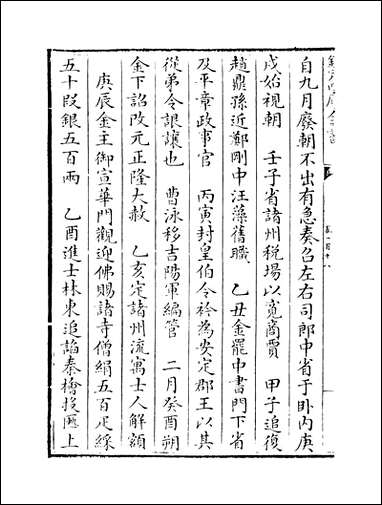 自九月廢朝不出有急奏召左右司郎中省于卧内庚
戌始視朝　壬子省諸州税場以寛商賈　甲子追復
趙鼎孫近鄭剛中汪藻舊職　乙丑金罷中書門下省
及平章政事官　丙寅封皇伯令衿為安定郡王以其
從弟令詪讓也　曹泳移吉陽軍編管　二月癸酉朔
金下詔改元正隆大赦　乙亥定諸州流寓士人解額
庚辰金主御宣華門觀迎佛賜諸寺僧絹五百疋綵
五十段銀五百兩　乙酉進士林東追諂秦檜投匭上